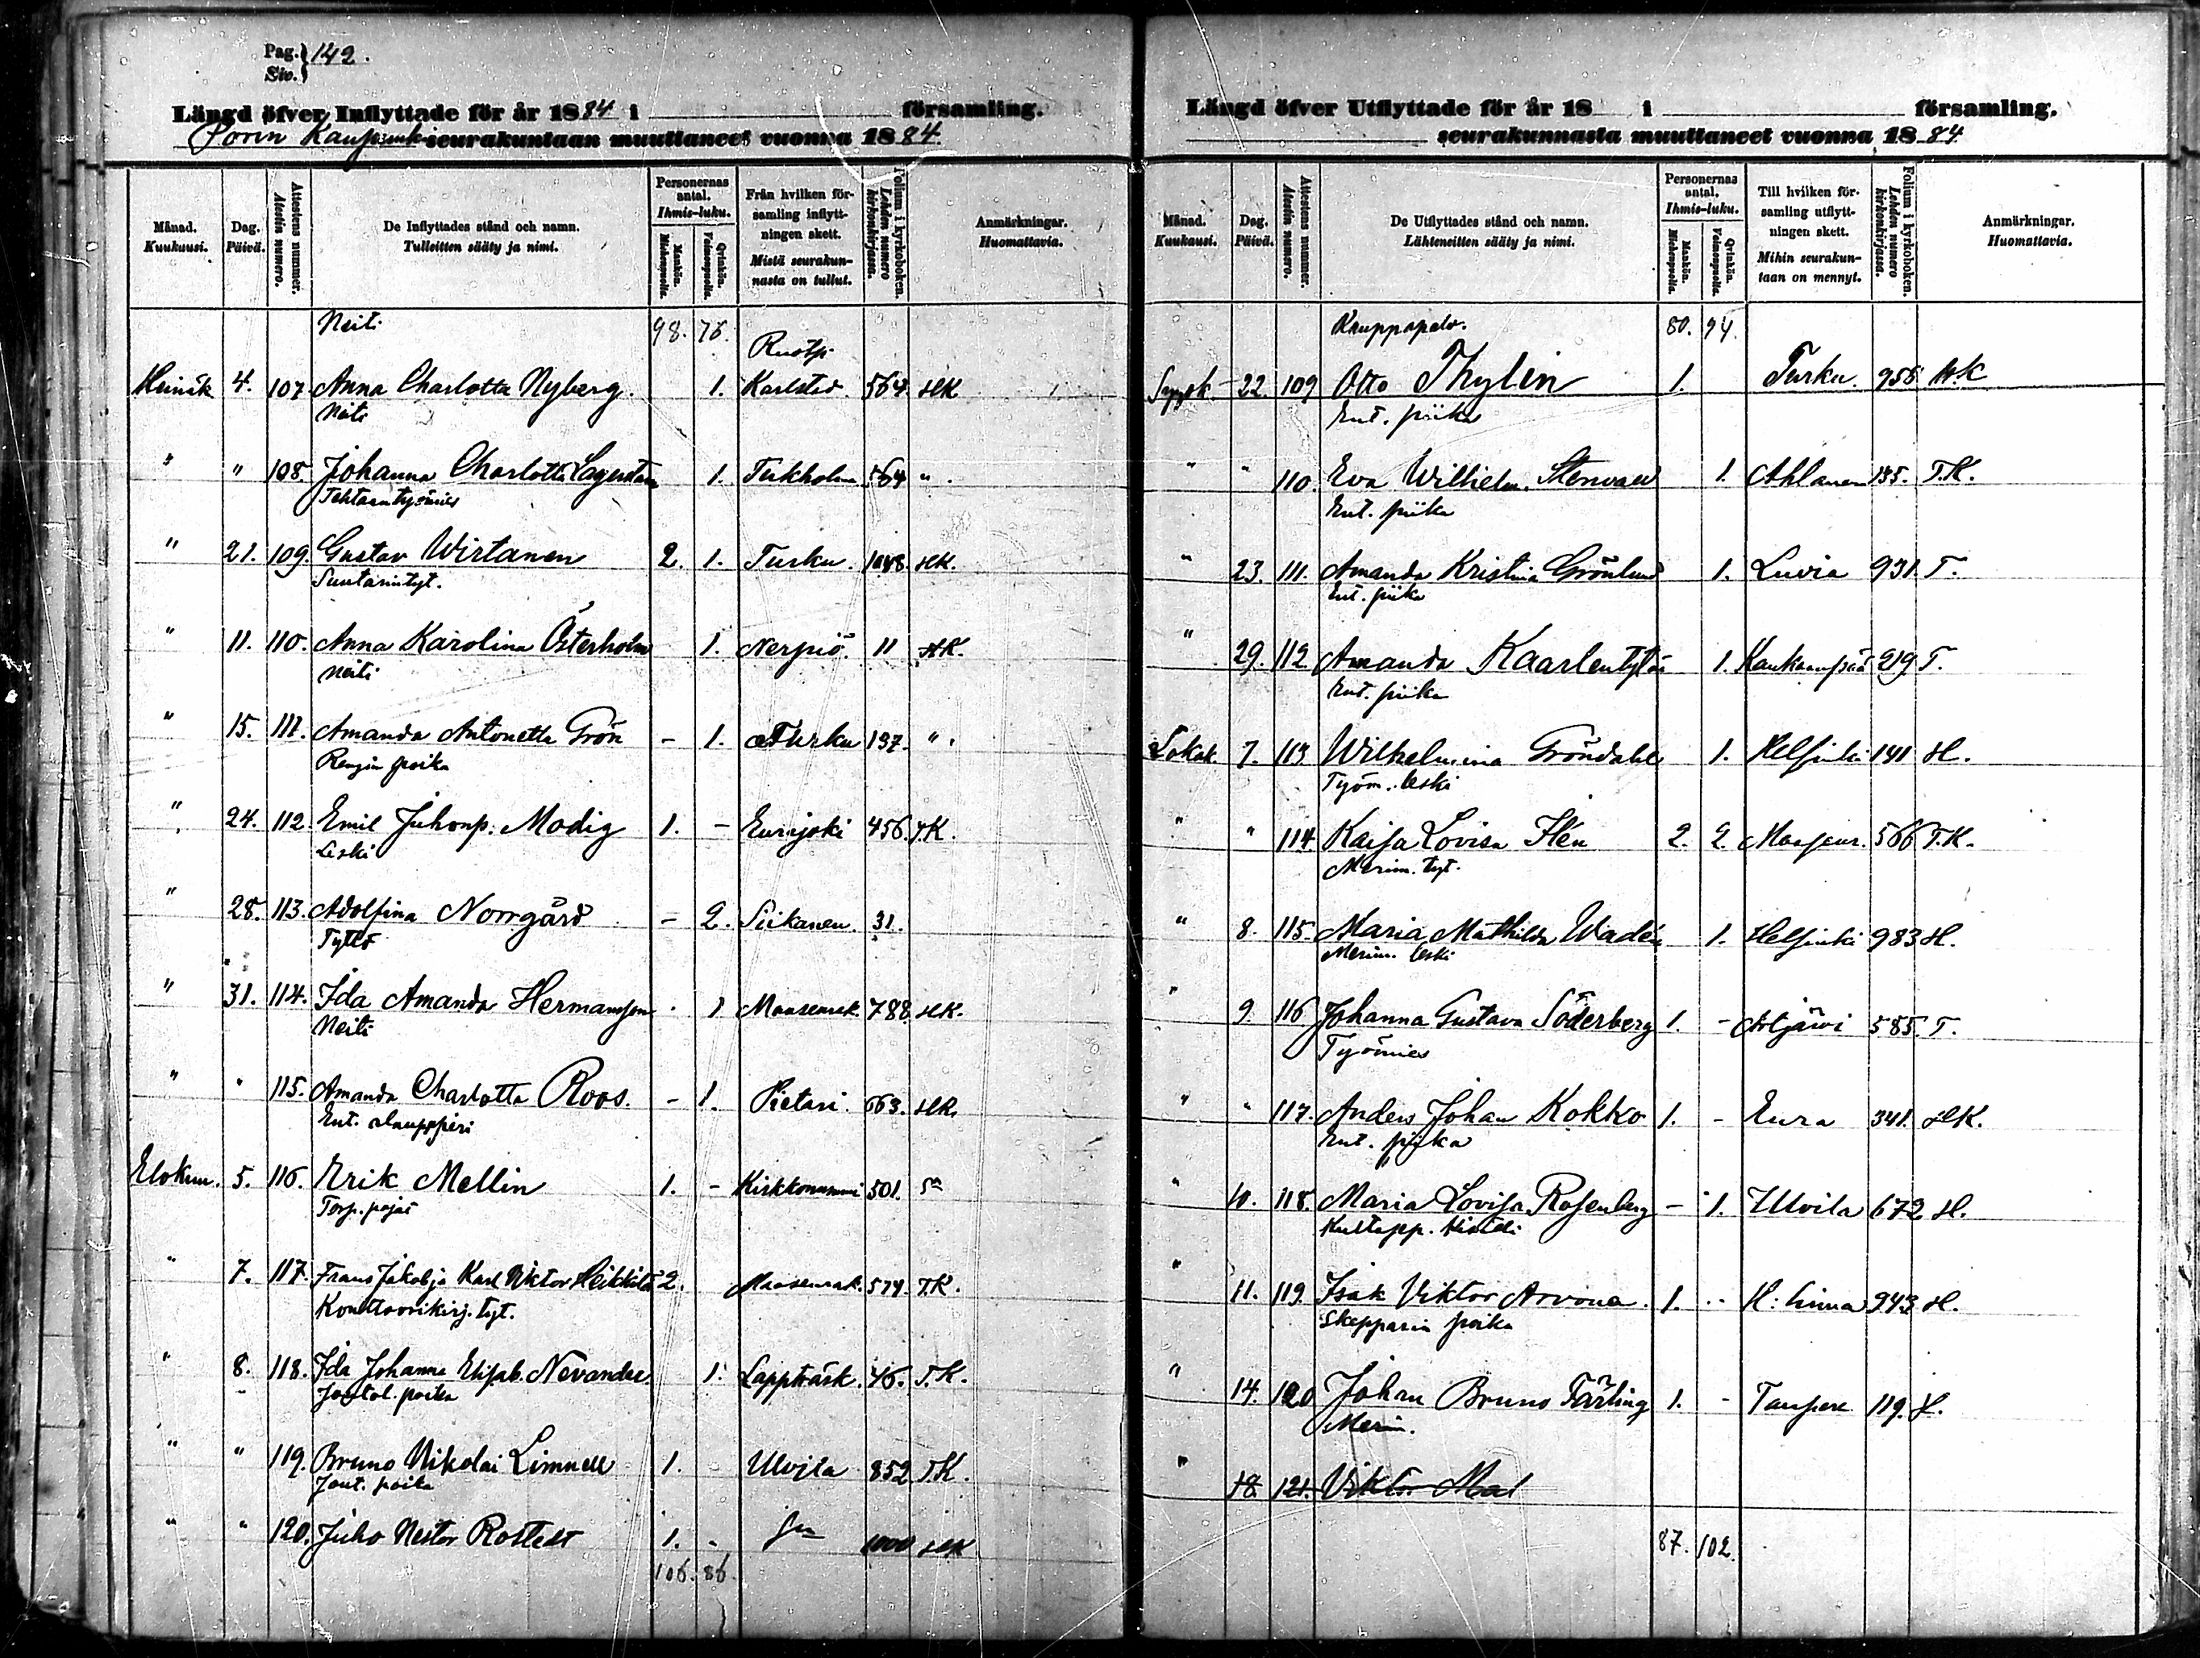 Pag. Siv. } 142.
Längd öfver Inflyttade för år 1884 i församling.
Porin Kaupunki seurakuntaan muuttaneet vuonna 1884.
Månad. Kuukausi.
Dag. Päivä.
Attestens nummer. Atestin numero.
De Inflyttades stånd och namn. Tulleitten sääty ja nimi.
Personernas antal. Ihmis-luku.
Mankön. Miehenpuolia.
Qvinkön. Vaimonpuolia.
Från hvilken församling inflyttningen skett. Mistä seurakunnasta on tullut.
Folium i kyrkoboken. Lehden numero kirkonkirjassa.
Anmärkningar. Huomattavia.
Neiti 98. 76. Ruotsi
Heinäk 4. 107. Anna Charlotta Nyberg. 1. Karlstad. 564. HK
Neiti
" " 108. Johanna Charlotta 1. 564 ".
Tehtaantyömies
" 21. 109. Gustav Wirtanen 2. 1. Turku. 1048. HK.
Suutarintyt.
" 11. 110. Anna Karolina Österholm 1. Nerpiö. 11 HK.
Neiti
" 15. 111. Amanda Antonetta Grön - 1. Turku 137. ".
Rengin poika
" 24. 112. Emil Juhonp. Modig 1. - Eurajoki 456. T.K.
Leski
" 28. 113. Adolfina Norrgård - 2. Siikanen. 31.
Tyttö
" 31. 114. Ida Amanda Hermansson 1 Maaseurak. 788. HK.
Neiti
" " 115. Amanda Charlotta Roos. - 1. Pietari. 663. HK.
Ent.
Elokuu. 5. 116. Erik Mellin 1. - Kirkkonummi 501.
Torp. pojat
" 7. 117. Frans Jakob ja Karl Viktor Heikkilä 2. Maaseurak. 574. T.K.
Konttoorikirj. tyt.
" 8. 118. Ida Johanna Elisab. Nevander. 1. Lappträsk. 46. T.K.
poika
" " 119. Bruno Nikolai Limnell 1. Ulvila 852 T.K.
poika
" " 120. Juho Nestor Rostedt 1. - 1000 HK
106. 86.
Längd öfver Utflyttade för år 18 i församling.
seurakunnasta muuttaneet vuonna 1884
Månad. Kuukausi.
Dag. Päivä.
Attestens nummer. Atestin numero.
De Utflyttades stånd och namn. Lähteneitten sääty ja nimi.
Personernas antal. Ihmis-luku.
Mankön. Miehenpuolia.
Qvinkön. Vaimonpuolia.
Till hvilken församling utflyttningen skett. Mihin seurakuntaan on mennyt.
Folium i kyrkoboken. Lehden numero kirkonkirjassa.
Anmärkningar. Huomattavia.
Kauppapalv. 80. 94.
Syysk. 22. 109 Otto Thylin 1. Turku. 958 H.K
Ent. piika
" " 110. Eva Wilhelm. 1. 135. T.K.
Ent. piika
" 23. 111. Amanda Kristina Grönlund 1. Luvia 931. T.
Ent. piika
" 29. 112 Amanda Kaarlentytär 1. Kankaanpää 219. T.
Ent. piika
Lokak. 7. 113 Wilhelmina Gröndahl 1. Helsinki 141 H.
Työm. leski
" " 114. Kaisa Lovisa 2. 2. Maaseur. 566 T.K.
Merim. tyt.
" 8. 115. Maria Mathilda Wadén 1. Helsinki 983 H.
Merim. leski
" 9. 116 Johanna Gustava Söderberg 1. - 585. T.
Työmies
" " 117. Anders Johan Kokko 1. - Eura 341. HK.
Ent. piika
" 10. 118. Maria Lovisa Rosenberg - 1. Ulvila 672 H.
" 11. 119. Isak Viktor Arvona. 1. H:linna 943 H.
Skepparin poika
" 14. 120 Johan Bruno Färling 1. - Tampere 119.
Merim.
" 18. 121. Viktor
87. 102.